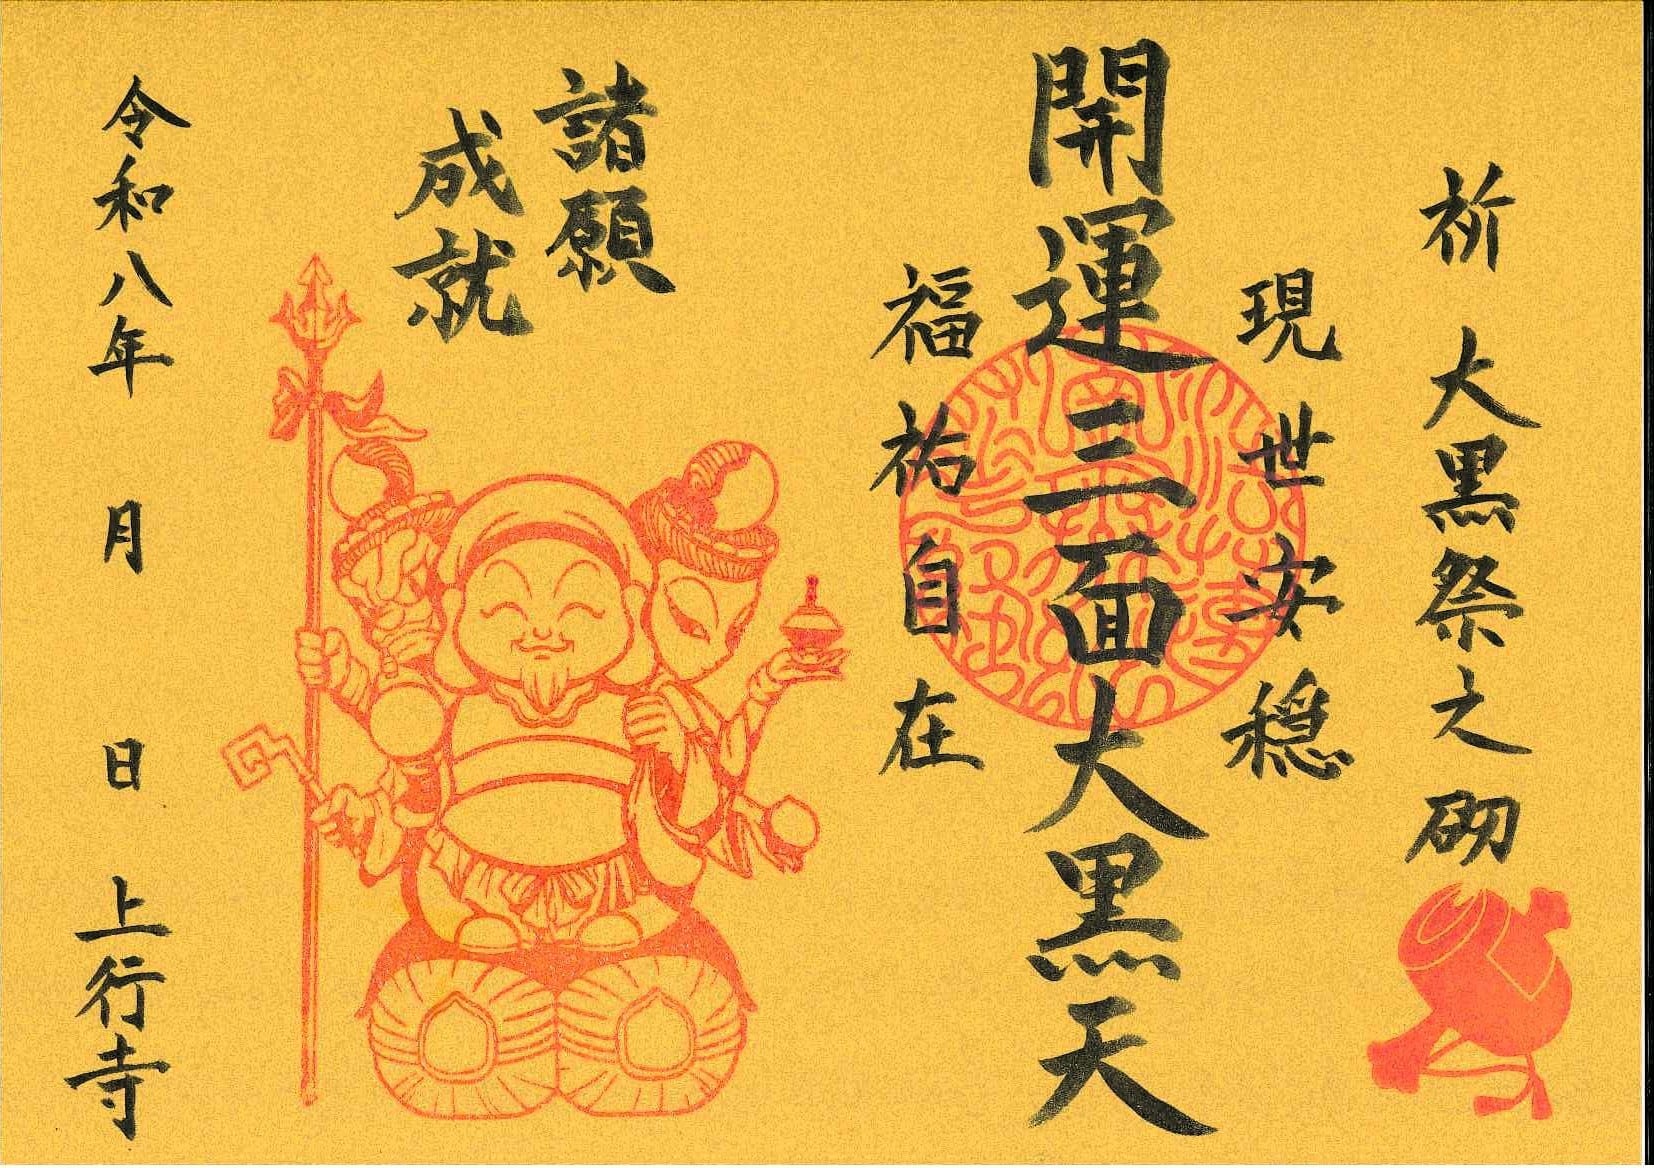 祈 大黒祭之砌
現世安穏
開運三面大黒天
福祐自在
諸願
成就
令和八年 月 日 上行寺